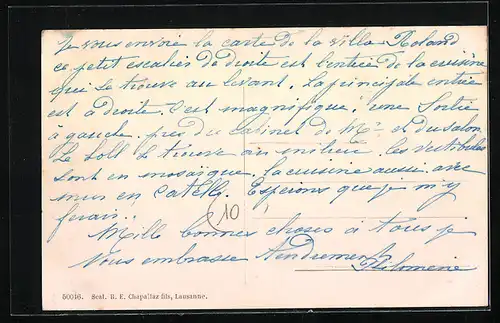 Je vous envoie la carte de la villa Roland
ce petit escalier de droite est l'entrée de la cuisine
qui se trouve au levant. La principale entrée
est à droite. C'est magnifique, une sortie
à gauche près du cabinet de Mr et du salon.
Le Holl se trouve au milieu. les vestibules
sont en mosaïque, la cuisine aussi avec
murs en catelle. Espérons que je m'y
ferais..
10
Mille bonnes choses à tous je
vous embrasse tendrement
Philomène
50016. Sesl. R. E. Chapallaz fils, Lausanne.